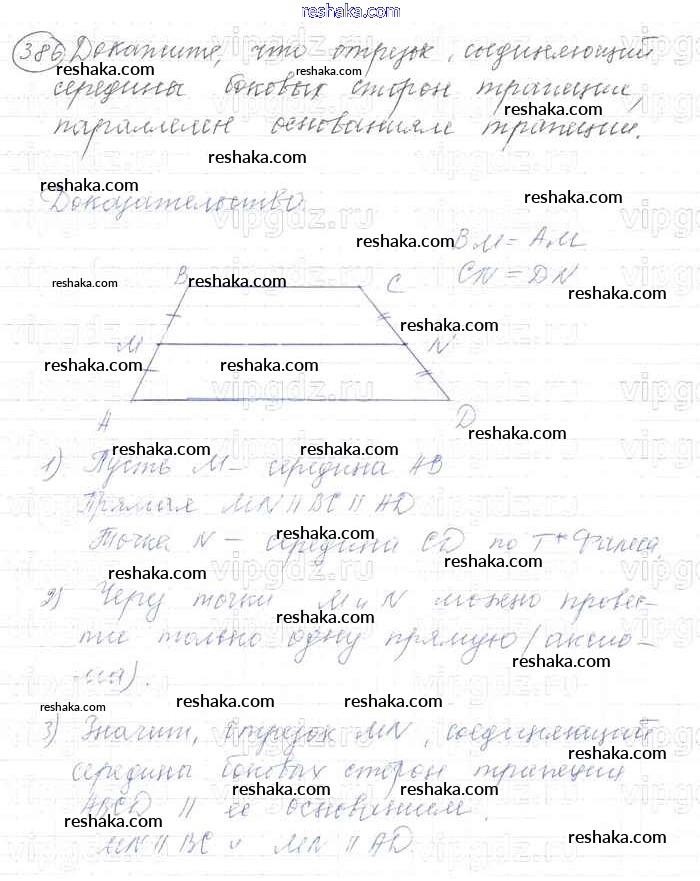 reshaka.com
reshaka.com
386 Докажите, что отрезок, соединяющий
reshaka.com reshaka.com
середины боковых сторон трапеции,
reshaka.com
параллелен основаниям трапеции.
reshaka.com
reshaka.com
Доказательство.
reshaka.com
reshaka.com
BM = AM
CN = DN
B C
reshaka.com reshaka.com reshaka.com
reshaka.com
M N
reshaka.com reshaka.com
A D
reshaka.com reshaka.com reshaka.com
1) Пусть M – середина AB
Прямая MN || BC || AD
reshaka.com reshaka.com
Точка N – середина CD по т. Фалеса.
reshaka.com reshaka.com
2) Через точки M и N можно провес-
reshaka.com
ти только одну прямую (аксио-
reshaka.com
ма).
reshaka.com reshaka.com reshaka.com
3) Значит, отрезок MN, соединяющий
reshaka.com
середины боковых сторон трапеции
reshaka.com reshaka.com
ABCD || ее основаниям.
reshaka.com
MN || BC и MN || AD.
reshaka.com